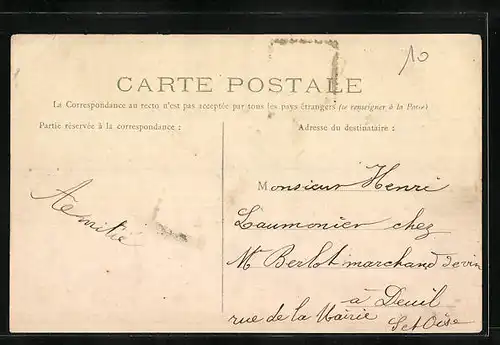 10
CARTE POSTALE
La Correspondance au recto n'est pas acceptée par tous les pays étrangers (se renseigner à la Poste)
Partie réservée à la correspondance :
Adresse du destinataire :
Amitié
Monsieur Henri
Laumonier chez
Mr Berlot marchand de vin
à Deuil
rue de la Mairie
S et Oise